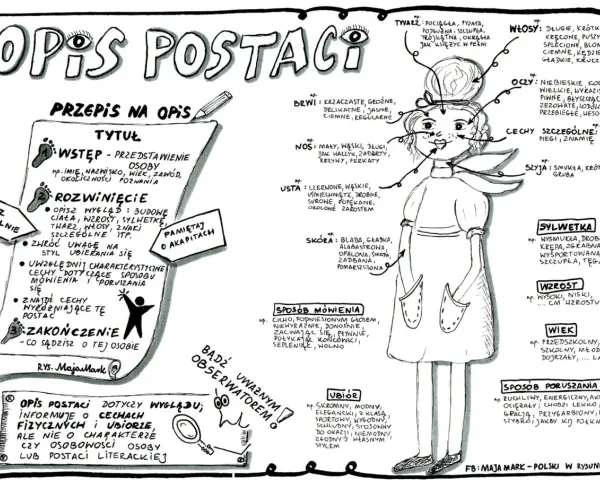 OPIS POSTACI
PRZEPIS NA OPIS
TYTUŁ
1 WSTĘP - PRZEDSTAWIENIE
OSOBY
np. IMIĘ, NAZWISKO, WIEK, ZAWÓD,
OKOLICZNOŚCI POZNANIA
2 ROZWINIĘCIE
• OPISZ WYGLĄD: BUDOWĘ
CIAŁA, WZROST, SYLWETKĘ,
TWARZ, WŁOSY, ZNAKI
SZCZEGÓLNE ITP.
• ZWRÓĆ UWAGĘ NA
STYL UBIERANIA SIĘ
• UWZGLĘDNIJ CHARAKTERYSTYCZNE
CECHY DOTYCZĄCE SPOSOBU
MÓWIENIA I PORUSZANIA
SIĘ
• ZNAJDŹ CECHY
WYRÓŻNIAJĄCE TĘ
POSTAĆ
3 ZAKOŃCZENIE
- CO SĄDZISZ O TEJ OSOBIE
RYS. Maja Mark
PAMIĘTAJ
O AKAPITACH
OPIS POSTACI DOTYCZY WYGLĄDU;
INFORMUJE O CECHACH
FIZYCZNYCH I UBIORZE,
ALE NIE O CHARAKTERZE
CZY OSOBOWOŚCI OSOBY
LUB POSTACI LITERACKIEJ
BĄDŹ UWAŻNYM
OBSERWATOREM!
TWARZ: POCIĄGŁA, PYZATA,
PODŁUŻNA, SZCZUPŁA,
TRÓJKĄTNA, OKRĄGŁA
JAK KSIĘŻYC W PEŁNI
BRWI: KRZACZASTE, GROŹNE,
DELIKATNE, JASNE,
CIEMNE, REGULARNE
NOS: MAŁY, WĄSKI, DŁUGI,
JAK HACZYK, ZADARTY,
KRZYWY, PERKATY
USTA: CZERWONE, WĄSKIE,
UŚMIECHNIĘTE, DROBNE,
SUROWE, POPĘKANE,
OKOLONE ZAROSTEM
SKÓRA: BLADA, GŁADKA,
ALABASTROWA,
OPALONA, ŚNIADA,
ZADBANA,
POMARSZCZONA
SPOSÓB MÓWIENIA
np. CICHO, PODNIESIONYM GŁOSEM,
NIEWYRAŹNIE, DONOŚNIE,
ZACINAJĄC SIĘ, PŁYNNIE,
POŁYKAJĄC KOŃCÓWKI,
SEPLENIĄC, WOLNO
UBIÓR
np. SKROMNY, MODNY,
ELEGANCKI, Z KLASĄ,
SPORTOWY, WYGODNY,
SCHLUDNY, STOSOWNY
DO OKAZJI, NIEMODNY,
ZGODNY Z WŁASNYM
STYLEM
WŁOSY: DŁUGIE,
KRĘCONE,
SPLECIONE,
CIEMNE,
GŁADKIE, KRUCZE
OCZY: NIEBIESKIE,
WIELKIE,
PIWNE,
ZEZOWATE,
PRZEBIEGŁE,
CECHY SZCZEGÓLNE:
PIEGI, ZNAMIĘ
SZYJA: SMUKŁA,
GRUBA
SYLWETKA
np. WYSMUKŁA,
KRĘPA, ZGRABNA
WYSPORTOWANA
SZCZUPŁA, TĘGA
WZROST
np. WYSOKI, NISKI,
... CM WZROSTU
WIEK
np. PRZEDSZKOLNY,
SZKOLNY,
DOJRZAŁY, ...
SPOSÓB PORUSZANIA
np. RUCHLIWY, ENERGICZNY,
OCIĘŻAŁY; CHODZI LEKKO,
GRACJĄ, PRZYGARBIONY,
SZYBKO, JAKBY KIJ
FB: MAJA MARK - POLSKI W